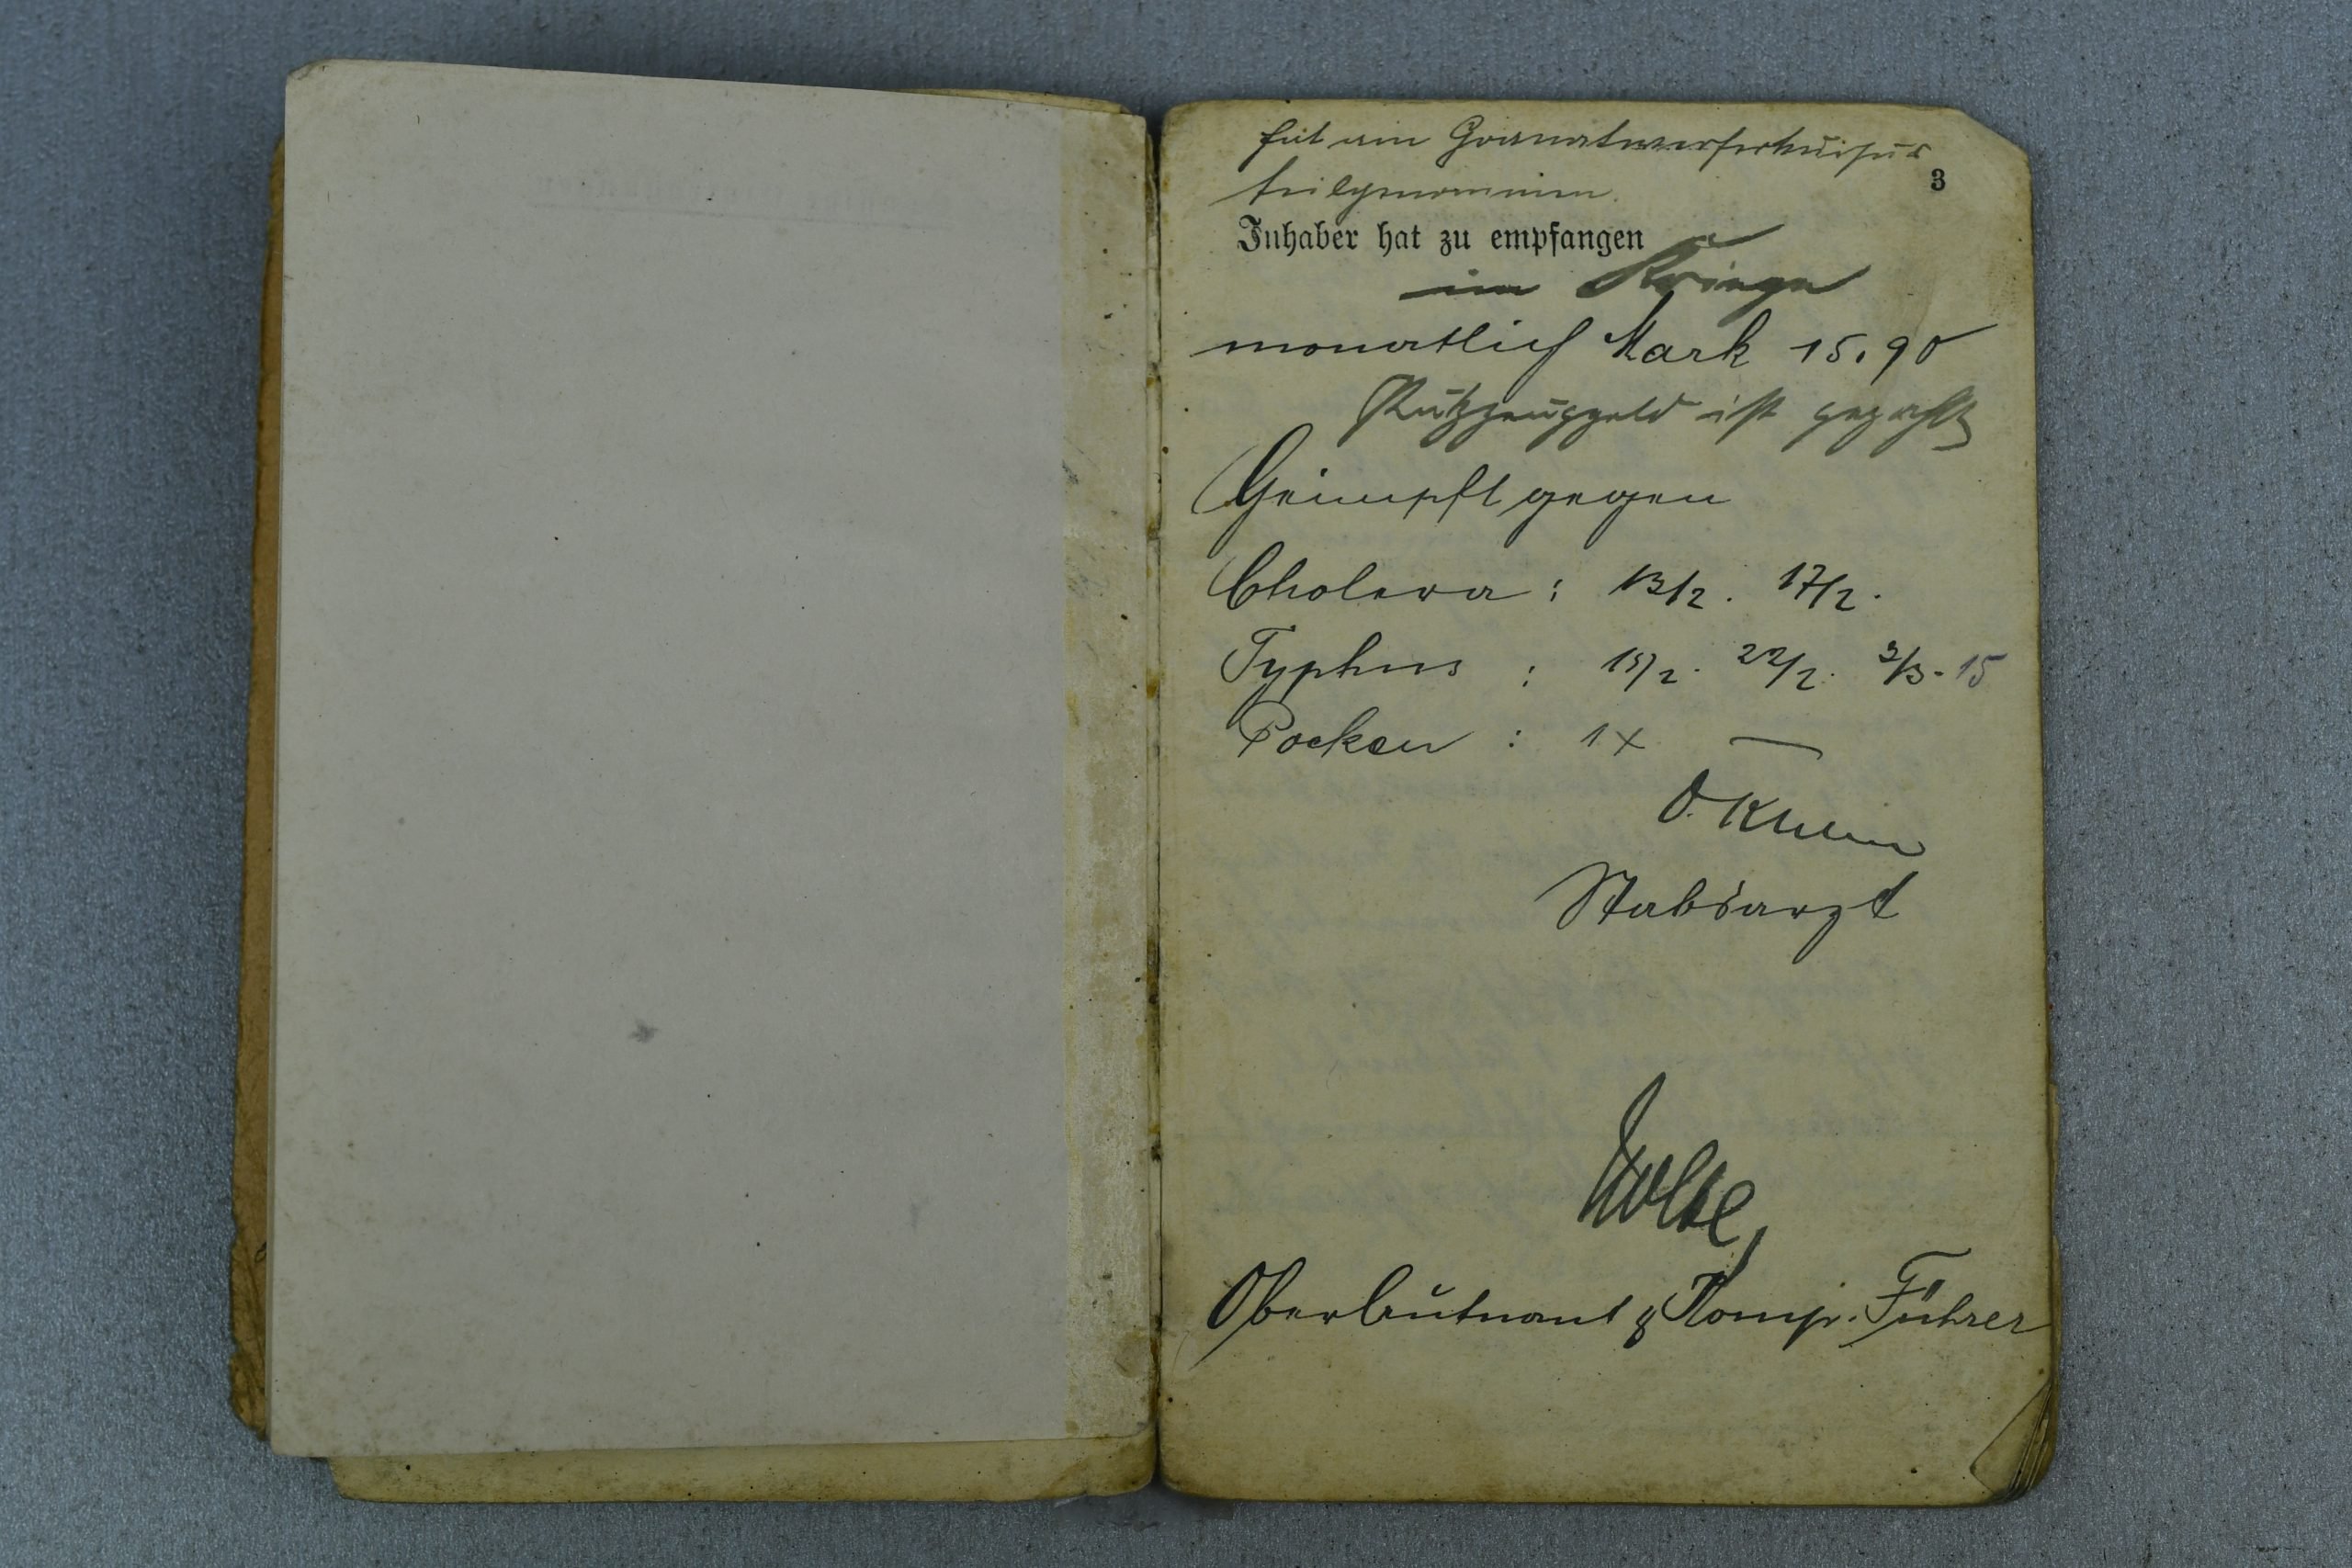 hat am Granatwerferkursus
3
teilgenommen.
Inhaber hat zu empfangen
im Kriege
monatlich Mark 15.90
Putzzeuggeld ist gezahlt
Geimpft gegen
Cholera : 13/2. 17/2.
Typhus : 22/2. 3/3. 15
Pocken : 1 x —
Stabsarzt
Oberleutnant & Komp. Führer